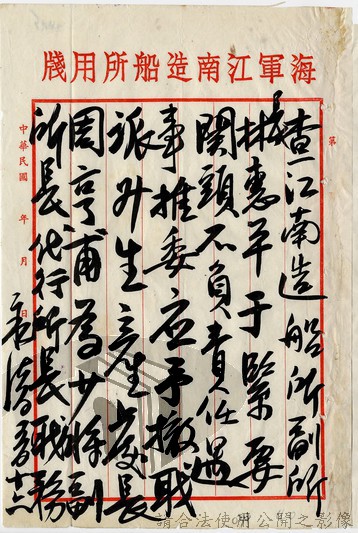 海軍江南造船所用牋
第
查江南造船所副所
長林惠平于緊要
関頭不負責任遇
事推委应予撤職
派升生產處長
周亨甫為少將副
所長代行所長職務
中華民國 年 月 日
請合法使用公開之影像